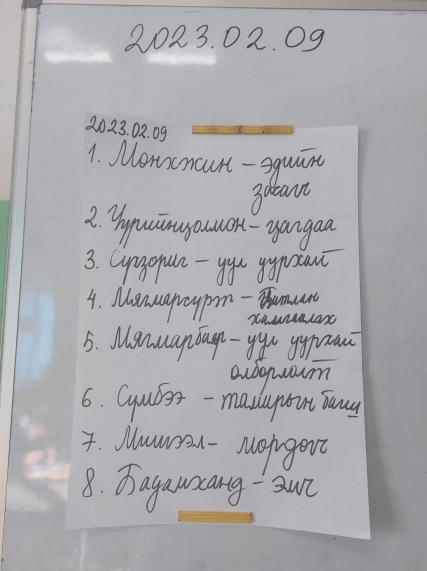 2023.02.09
2023.02.09
1. Мөнхжин – эдийн
засагч
2. Үүрийнцолмон – цагдаа
3. Сүгзориг – уул уурхай
4. Мягмарсүрэн –
хамгаалах
5. Мягмарбаяр – уул уурхай
олборлолт
6. Сумбээ – тамирын багш
7. Мишээл – мөрдөгч
8. Бадамханд – эмч